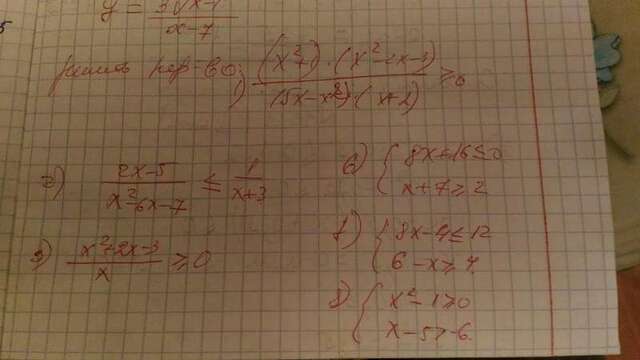 y = 3√x-1 / x-7
решить нер-во;
(x²+1)·(x²-2x-3) / (5x-x²)·(x+2) ≥ 0
2) 2x-5 / x²-6x-7 ≤ 1 / x+3
3) x²+2x-3 / x ≥ 0
6) { 8x+16≤0
x+7≥2
{ 8x-4≤12
6-x≥4
{ x²-1≥0
x-5>-6